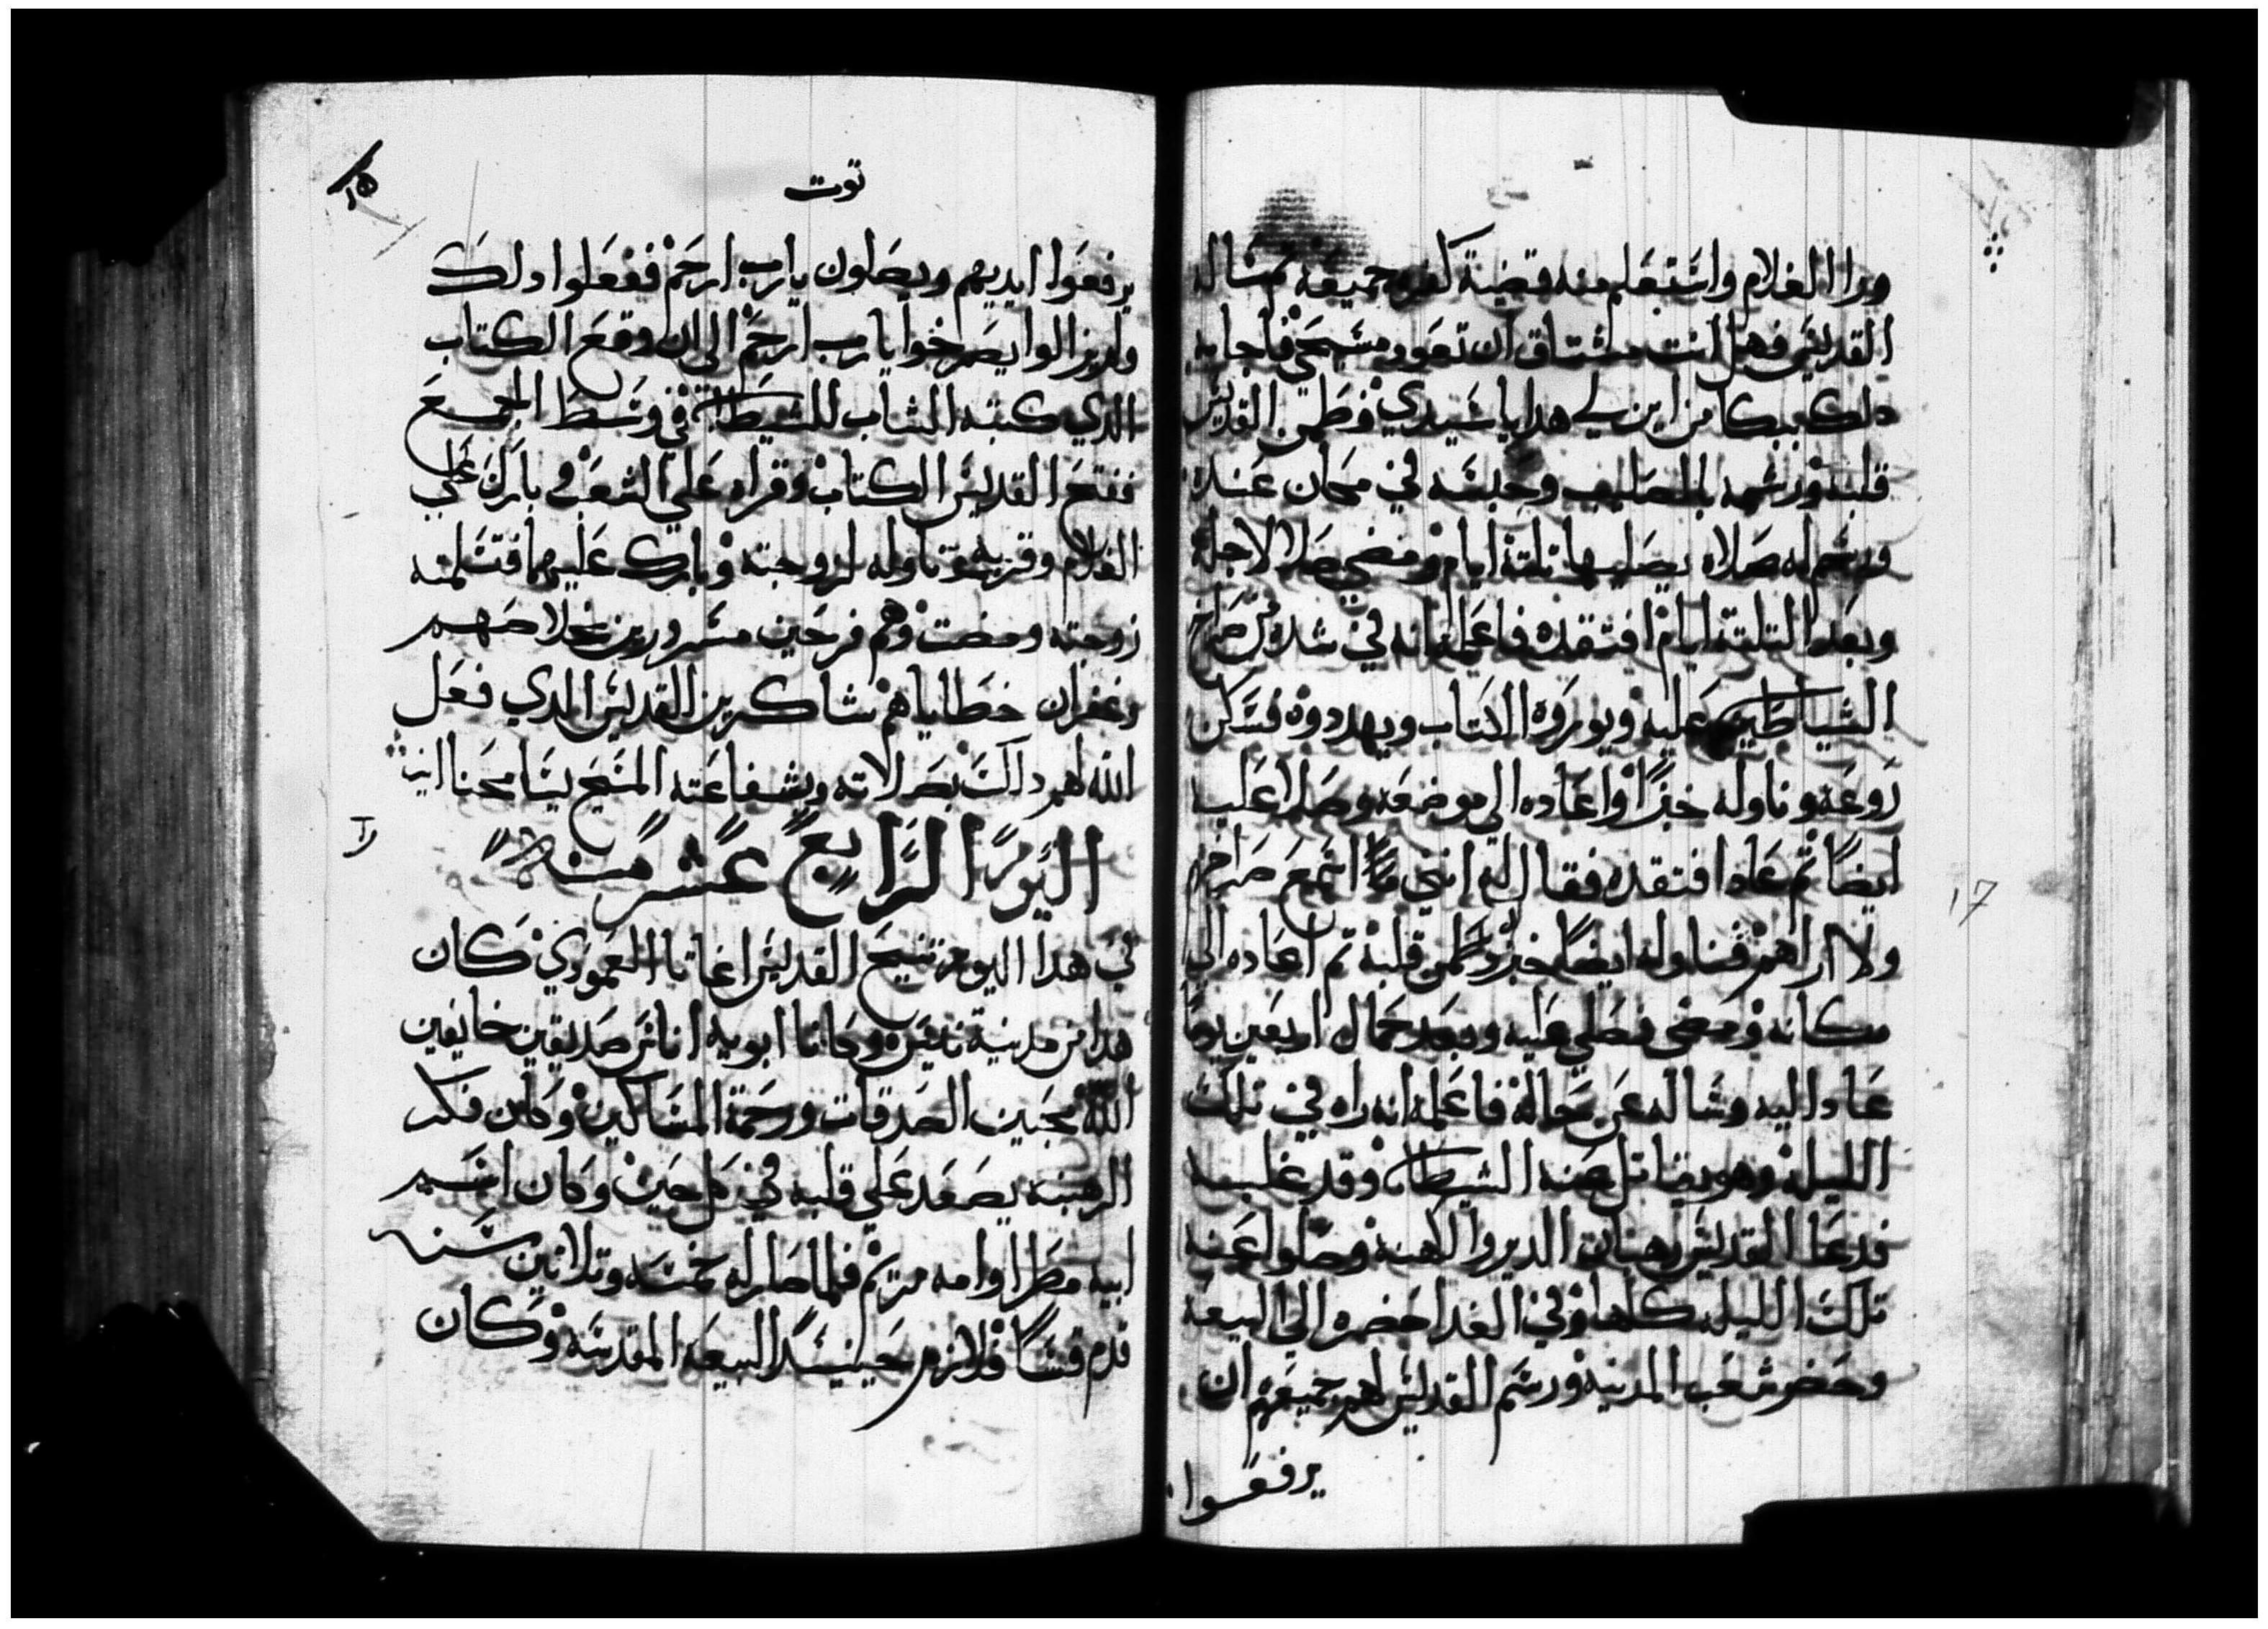 ورا الغلام واستعلم منه قضية كفره جميعه تم ساله
القديس فهل انت مشتاق ان تعود مسيحي فاجابه
دلك ببكا من اين لي هدا يا سيدي فطمن القديس
قلبه ورشمه بالصليب وحبسه في مكان عنده
ورسم له صلاه يصليها تلتة ايام ومضي صلا لاجله
وبعد التلتة ايام افتقده فاعلمه انه في شده من صراخ
الشياطين عليه ويوروه الكتاب ويهددوه فسكن
روعه وناوله خبزا واعاده الي موضعه وصلا عليه
ايضا تم عاد افتقده فقال له انني اسمع صراخهم
ولا اراهم فناوله ايضا خبز وطمن قلبه تم اعاده الي
مكانه ومضي فصلي عليه وبعد كمال اربعين يوما
عاد اليه وساله عن حاله فاعلمه انه راه في تلك
الليله وهو يقاتل عنه الشيطان وقد غلبه
فدعا القديس رهبان الدير والكهنه وصلوا عنه
تلك الليله كلها وفي الغد احضره الي البيعه
وحضر شعب المدينه ورسم القديس لهم جميعهم ان
يرفعوا
توت
١٥
يرفعوا ايديهم ويصلون يارب ارحم ففعلوا دلك
ولم يزالوا يصرخوا يارب ارحم الي ان وقع الكتاب
الدي كتبه الشاب للشيطان في وسط الجمع
ففتح القديس الكتاب وقراه علي الشعب وبارك علي
الغلام وقربه وناوله لزوجته وبارك عليهما فتسلمته
زوجته ومضت وهم فرحين مسرورين بخلاصهم
وغفران خطاياهم شاكرين القديس الدي فعل
الله لهم دلك بصلاته وبشفاعته المسيح يسامحنا امين
اليوم الرابع عشر منه
في هدا اليوم تنيح القديس اغاتا العمودي كان
هدا من مدينة تنيس وكانا ابويه اناس صديقين خايفين
الله محبين الصدقات ورحمة المساكين وكان فكر
الرهبنه يصعد علي قلبه في كل حين وكان اسم
ابيه مطرا وامه مريم فلما صار له خمسه وتلاتين سنه
قدم قسا فلازم حينيد البيعه المقدسه وكان
17